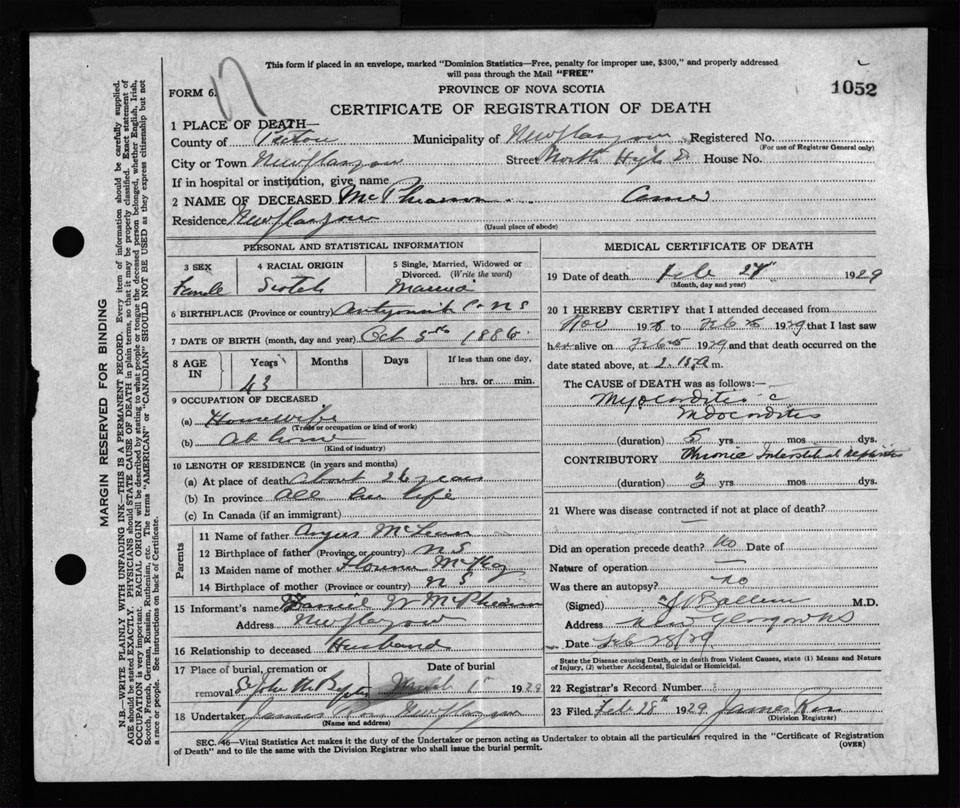 This form if placed in an envelope, marked "Dominion Statistics—Free, penalty for improper use, $300," and properly addressed
will pass through the Mail "FREE"
FORM 6. 17
PROVINCE OF NOVA SCOTIA
1052
CERTIFICATE OF REGISTRATION OF DEATH
1 PLACE OF DEATH—
County of Pictou Municipality of New Glasgow Registered No.
(For use of Registrar General only)
City or Town New Glasgow Street North High St House No.
If in hospital or institution, give name
2 NAME OF DECEASED McPhearson Annie
Residence New Glasgow
(Usual place of abode)
PERSONAL AND STATISTICAL INFORMATION
3 SEX 4 RACIAL ORIGIN 5 Single, Married, Widowed or
Divorced. (Write the word)
Female Scotch Married
6 BIRTHPLACE (Province or country) Antigonish Co NS
7 DATE OF BIRTH (month, day and year) Oct 5th 1886
8 AGE IN Years Months Days If less than one day,
43 hrs. or min.
9 OCCUPATION OF DECEASED
(a) Housewife
(Trade or occupation or kind of work)
(b) At home
(Kind of industry)
10 LENGTH OF RESIDENCE (in years and months)
(a) At place of death About 26 years
(b) In province All her life
(c) In Canada (if an immigrant)
Parents
11 Name of father Angus McLean
12 Birthplace of father (Province or country) NS
13 Maiden name of mother Florence McKay
14 Birthplace of mother (Province or country) NS
15 Informant's name Daniel W McPhearson
Address New Glasgow
16 Relationship to deceased Husband
17 Place of burial, cremation or Date of burial
removal St John March 1 1929
18 Undertaker James New Glasgow
(Name and address)
MEDICAL CERTIFICATE OF DEATH
19 Date of death Feb 27 1929
(Month, day and year)
20 I HEREBY CERTIFY that I attended deceased from
Nov 19 to Feb 1929 that I last saw
her alive on Feb 1929 and that death occurred on the
date stated above, at 2. a m.
The CAUSE OF DEATH was as follows:—
Myocarditis c
Endocarditis
(duration) 5 yrs. mos. dys.
CONTRIBUTORY Chronic Interstitial Nephritis
(duration) 3 yrs. mos. dys.
21 Where was disease contracted if not at place of death?
—
Did an operation precede death? No Date of
Nature of operation —
Was there an autopsy? no
(Signed) M.D.
Address New Glasgow NS
Date Feb 28/29
State the Disease causing Death, or in death from Violent Causes, state (1) Means and Nature
of Injury, (2) whether Accidental, Suicidal or Homicidal.
22 Registrar's Record Number
23 Filed Feb 28th 1929 James
(Division Registrar)
SEC. 46—Vital Statistics Act makes it the duty of the Undertaker or person acting as Undertaker to obtain all the particulars required in the "Certificate of Registration
of Death" and to file the same with the Division Registrar who shall issue the burial permit. (OVER)
MARGIN RESERVED FOR BINDING
N.B.—WRITE PLAINLY WITH UNFADING INK—THIS IS A PERMANENT RECORD. Every item of information should be carefully supplied.
AGE should be stated EXACTLY. PHYSICIANS should STATE CAUSE OF DEATH in plain terms so that it may be properly classified. Exact statement of
OCCUPATION is very important. RACIAL ORIGIN will be described by stating to what people or tongue the deceased person belonged, whether English, Irish,
Scotch, French, German, Russian, Ruthenian, etc. The terms "AMERICAN" or "CANADIAN" SHOULD NOT BE USED as they express citizenship but not
a race or people. See instructions on back of Certificate.